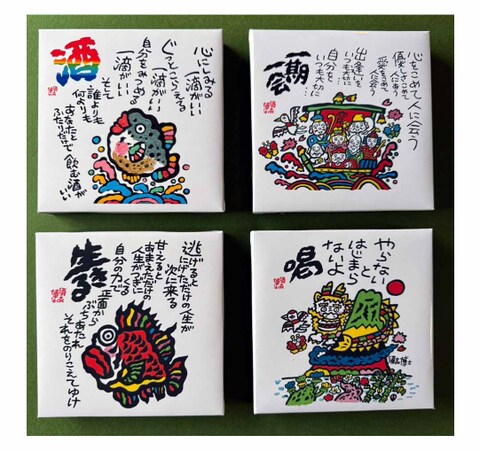 酒
心にしみる
一滴がいい
ぐっとこらえる
一滴がいい
自分をみつめる
一滴がいい
そして
誰よりも
何よりも
あなたと
ふたりだけで
飲む酒がいい
一期
一会
心をこめて人に会う
優しさこめて
人に会う
愛をこめて
人に会う
出逢いを
いつも大切に…
自分を…
いつも大切に
生きる
逃げると
にげただけの人生が
次に来る
甘えると
あまえただけの
人生がつぎにくる
自分の力で
正面から
ぶちあたれ
それをのりこえてゆけ
喝
やらない
と
はじまら
ないよ